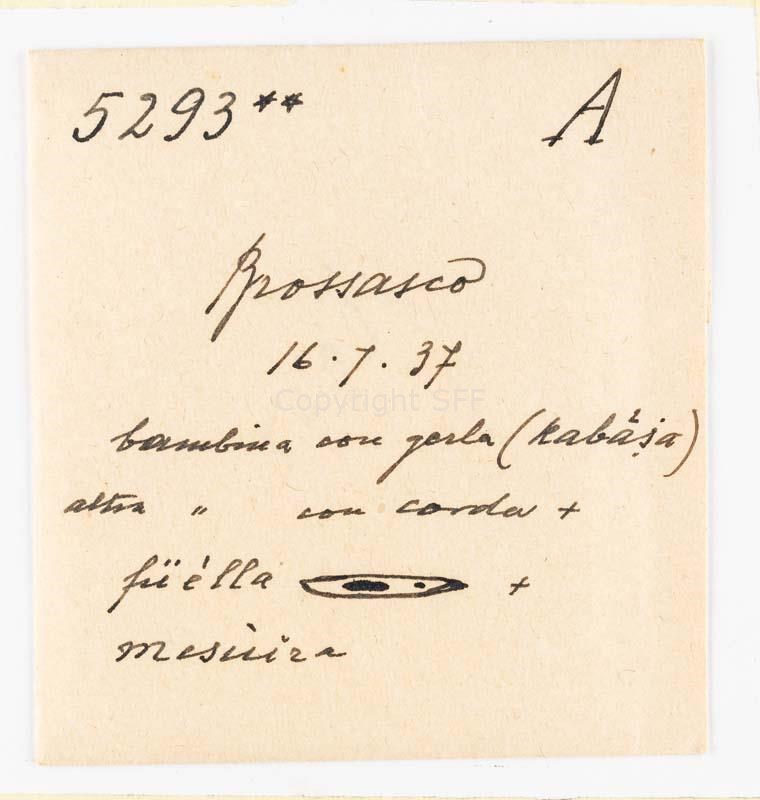 5293** A
Brossasco
16.7.37
Copyright SFF
bambina con gerla (kabása)
altra " con corda +
füèlla +
mesüira